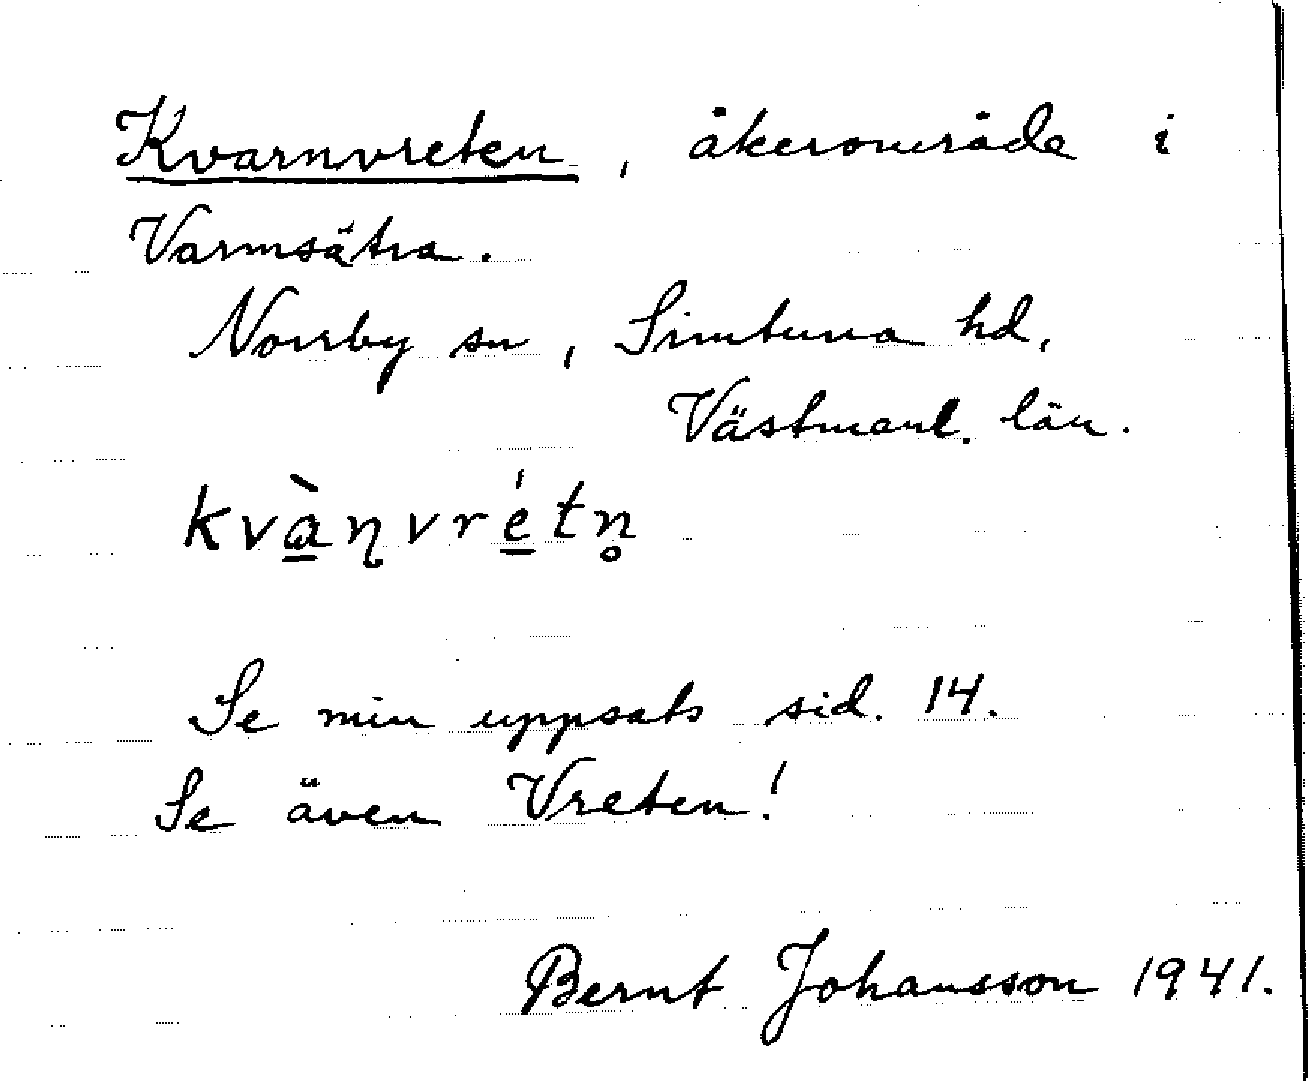 Kvarnvreten, åkerområde i
Varmsätra.
Norrby sn, Simtuna hd,
Västmanl. län.
kvа̱̀ɳvré̱tn̥
Se min uppsats sid. 14.
Se även Vreten!
Bernt Johansson 1941.